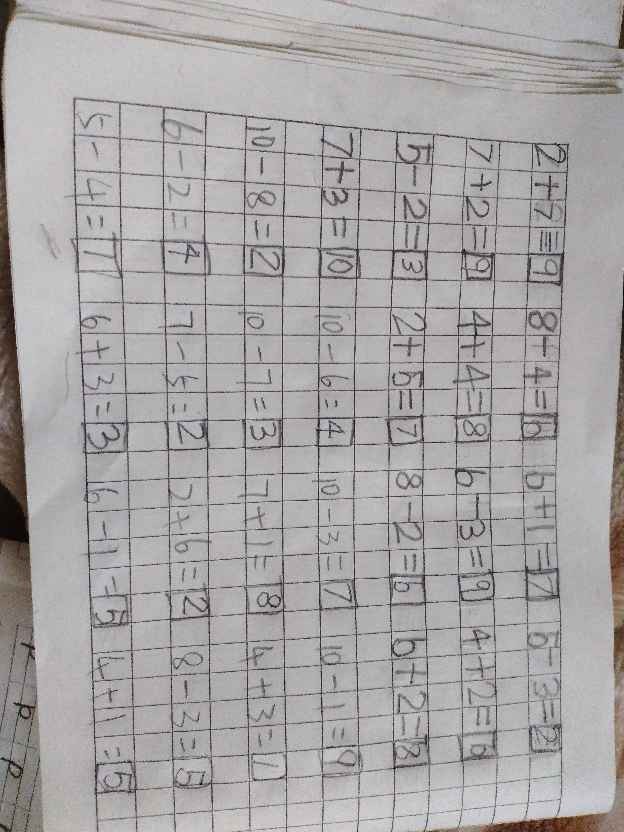 2+7=9 8+4=6 6+1=7 5-3=2
7+2=9 4+4=8 6-3=9 4+2=6
5-2=3 2+5=7 8-2=6 6+2=8
7+3=10 10-6=4 10-3=7 10-1=9
10-8=2 10-7=3 7+1=8 4+3=7
6-2=4 7-5=2 2+6=2 8-3=5
5-4=7 6+3=3 6-1=5 4+1=5